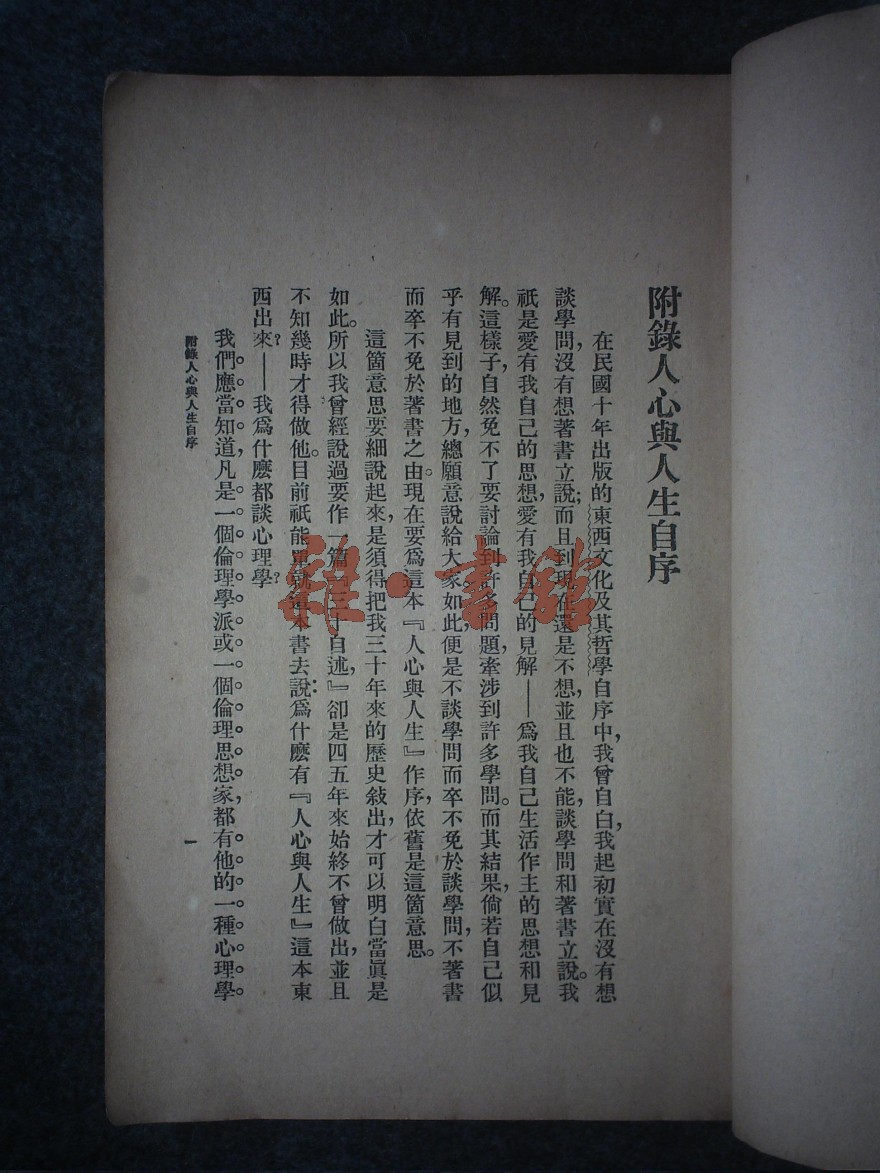 附錄人心與人生自序
在民國十年出版的東西文化及其哲學自序中，我曾自白，我起初實在沒有想
談學問，沒有想著書立說；而且到現在還是不想，並且也不能，談學問和著書立說。我
祇是愛有我自己的思想，愛有我自己的見解——爲我自己生活作主的思想和見
解。這樣子，自然免不了要討論到許多問題，牽涉到許多學問。而其結果，倘若自己似
乎有見到的地方，總願意說給大家。如此，便是不談學問而卒不免於談學問，不著書
而卒不免於著書之由。現在要爲這本『人心與人生』作序，依舊是這箇意思。
這箇意思要細說起來，是須得把我三十年來的歷史敍出，才可以明白當眞是
如此。所以我曾經說過要作一篇『三十自述，』卻是四五年來始終不曾做出，並且
不知幾時才得做他。目前祇能單就這本書去說：爲什麽有『人心與人生』這本東
西出來？——我爲什麽都談心理學？
我們應當知道，凡是一個倫理學派或一個倫理思想家，都有他的一種心理學
附錄人心與人生自序
一
雜·書館